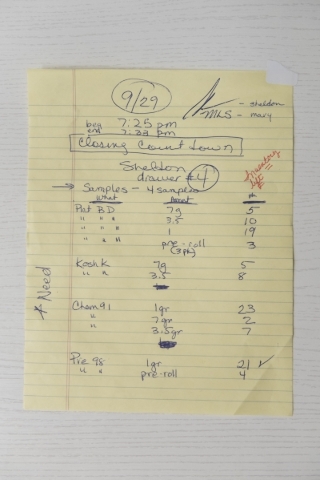 9/29
- sheldon
MLS - mary
beg 7:25 pm
end 7:33 pm
Closing Count down
Sheldon
drawer #4
Samples - 4 samples
what Amnt #
Pat BD 7g 5
" " " 3.5 10
" " " 1 19
" " " pre-roll 3
(3pk)
Kosh K 7g 5
" " 3.5 8
* Need
Chem 91 1gr 23
" 7gr 2
" 3.5gr 7
Pre 98 1gr 21 ✓
" " pre-roll 4